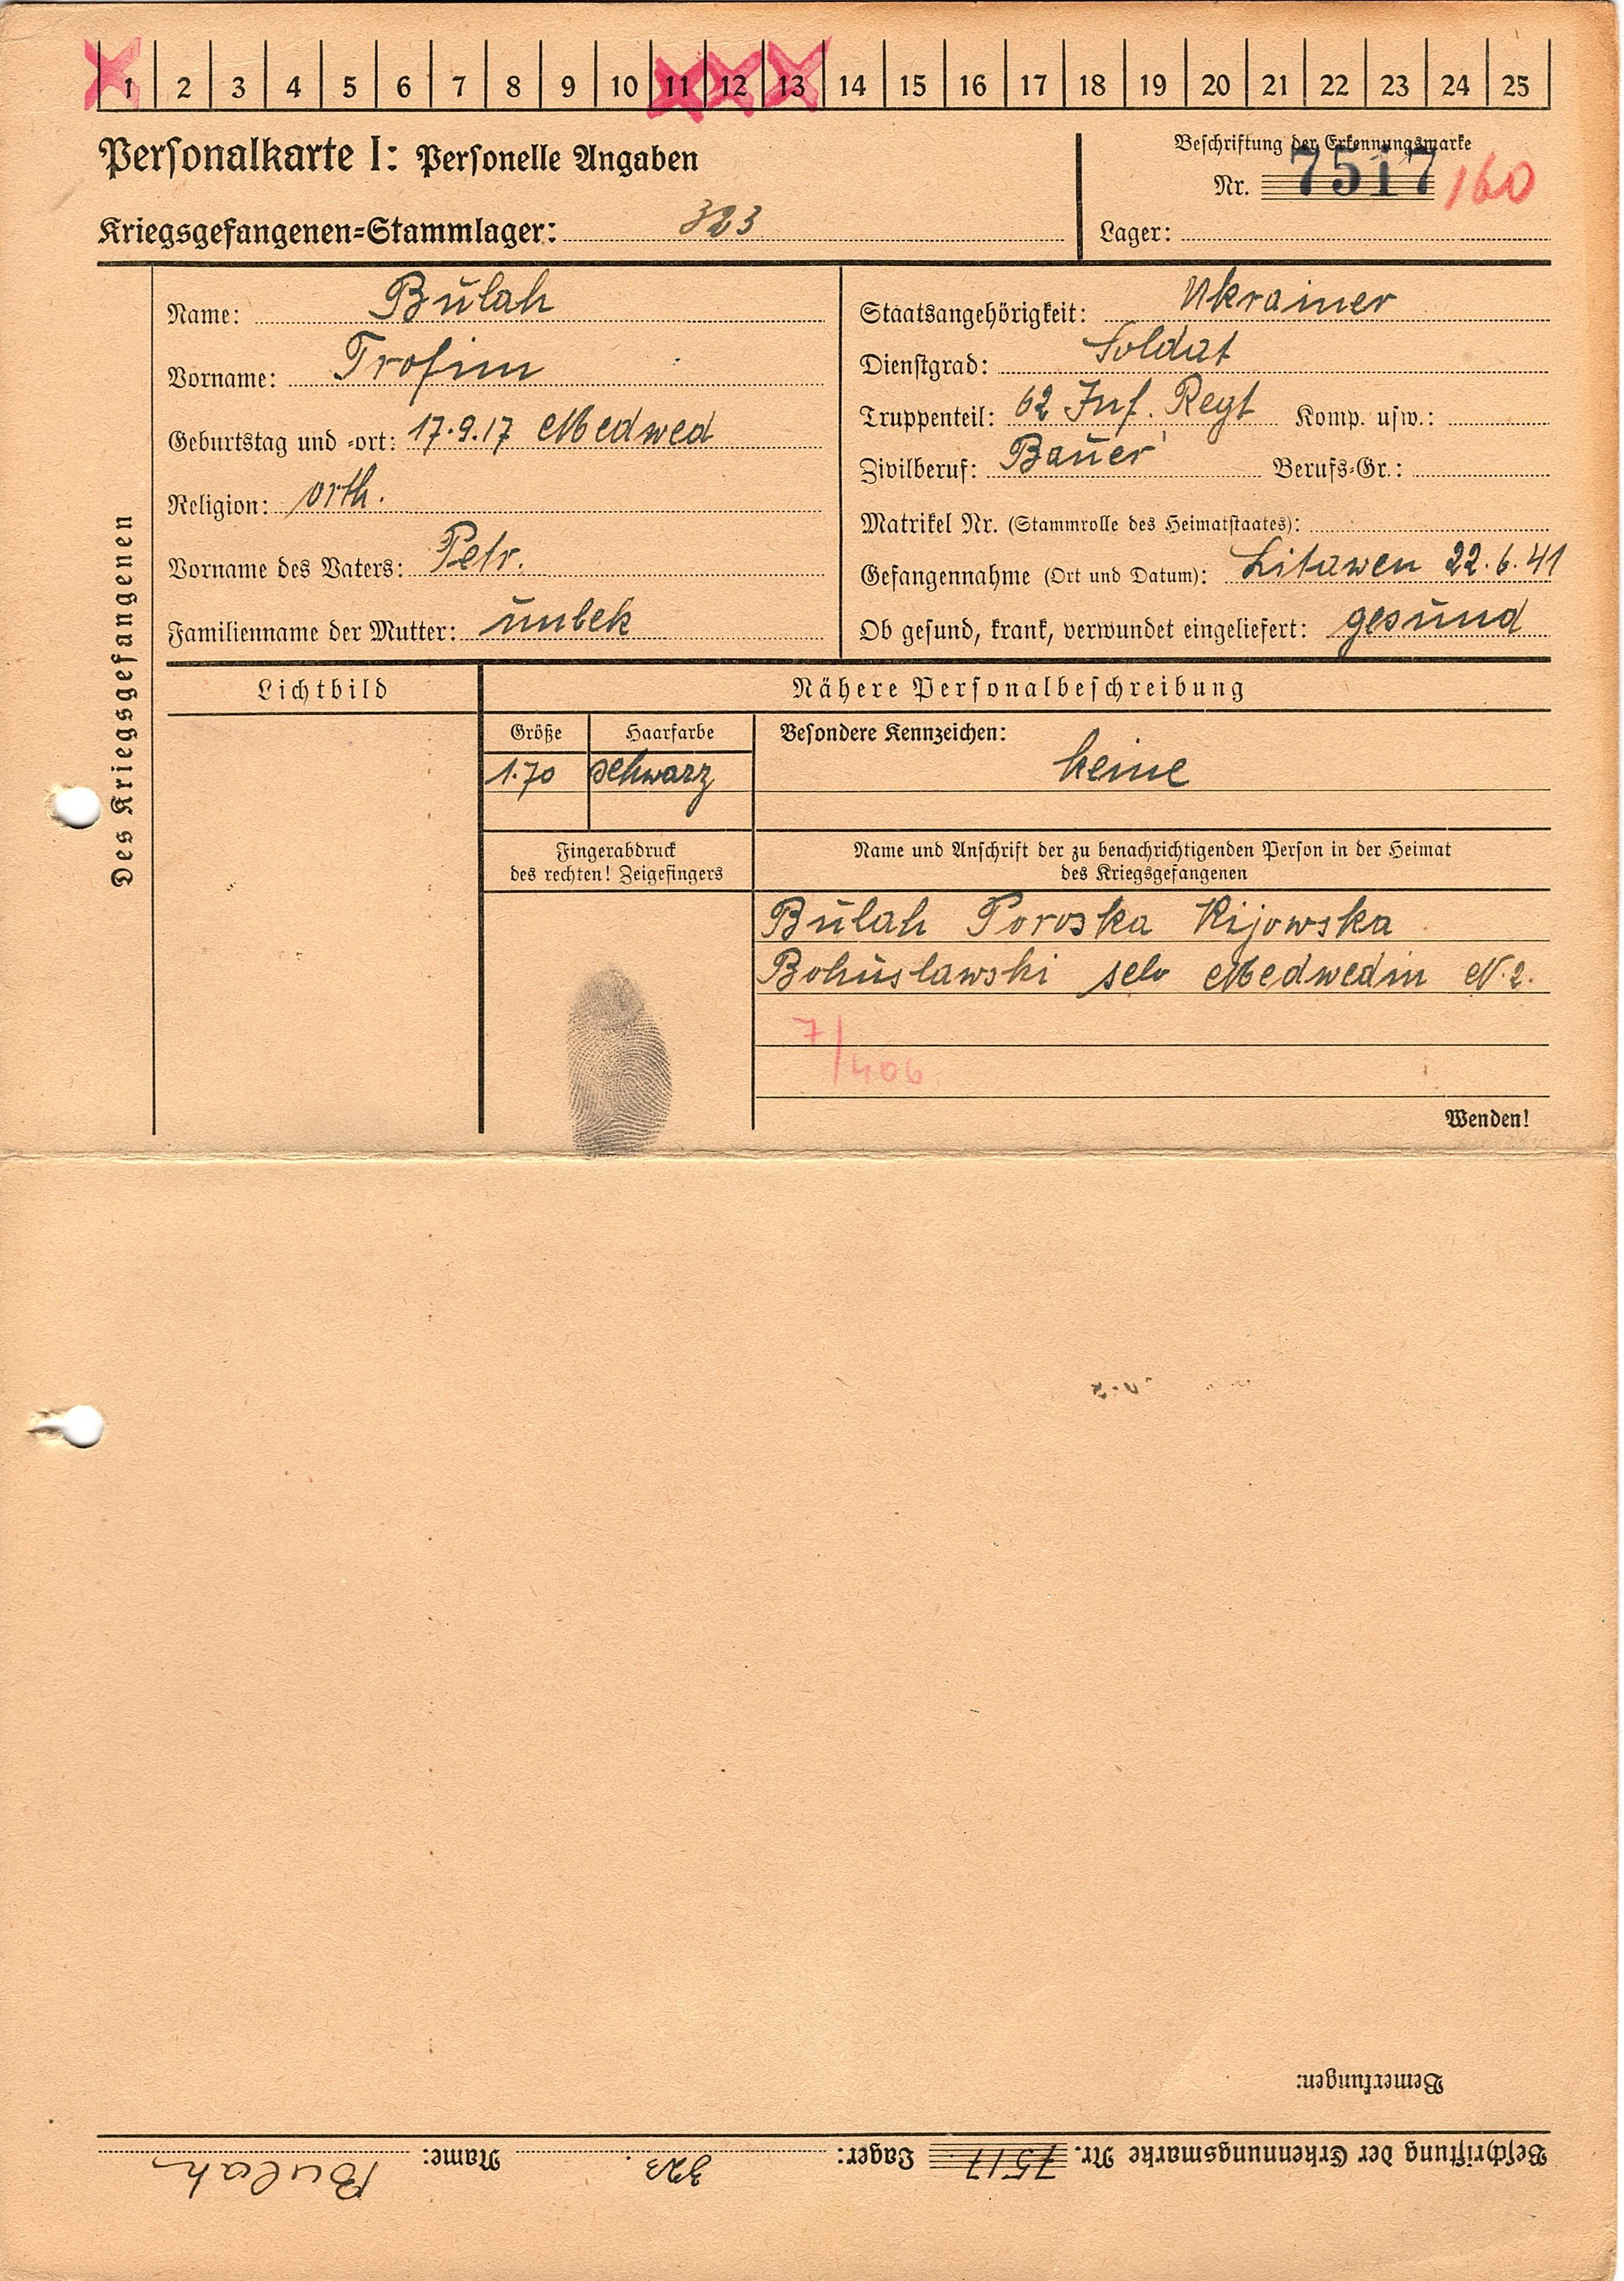 1 2 3 4 5 6 7 8 9 10 11 12 13 14 15 16 17 18 19 20 21 22 23 24 25
Personalkarte I: Personelle Angaben
Beschriftung der Erkennungsmarke
Nr. 7517 160
Kriegsgefangenen=Stammlager: 323
Lager:
Des Kriegsgefangenen
Name: Bulah
Vorname: Trofim
Geburtstag und =ort: 17.9.17 Medwed
Religion: orth.
Vorname des Vaters: Petr.
Familienname der Mutter: unbek
Staatsangehörigkeit: Ukrainer
Dienstgrad: Soldat
Truppenteil: 62 Inf. Regt Komp. usw.:
Zivilberuf: Bauer Berufs=Gr.:
Matrikel Nr. (Stammrolle des Heimatstaates):
Gefangennahme (Ort und Datum): Litawen 22.6.41
Ob gesund, krank, verwundet eingeliefert: gesund
Lichtbild
Nähere Personalbeschreibung
Größe Haarfarbe
1.70 schwarz
Besondere Kennzeichen:
keine
Fingerabdruck
des rechten! Zeigefingers
Name und Anschrift der zu benachrichtigenden Person in der Heimat
des Kriegsgefangenen
Bulah Poroska Kijowska
Bohuslawski selo Medwedin N.2.
7/406
Wenden!
Bemerkungen:
Beschriftung der Erkennungsmarke Nr. 7517 Lager: 323. Name: Bulah